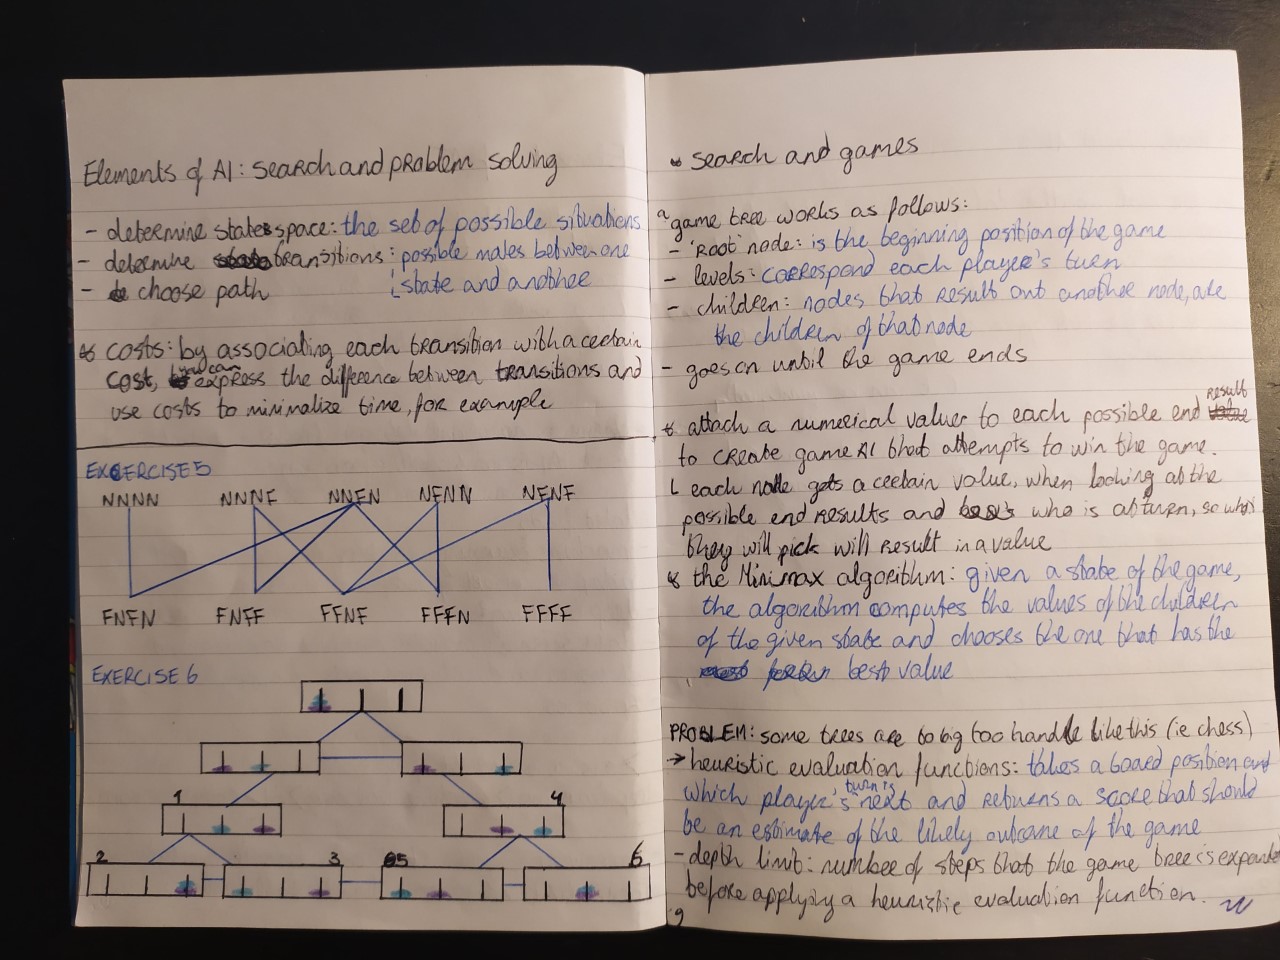 Elements of AI: search and problem solving
- determine states space: the set of possible situations
- determine transitions: possible moves between one
state and another
- choose path
costs: by associating each transition with a certain
cost, you can express the difference between transitions and
use costs to minimalize time, for example
EXERCISE 5
NNNN NNNF NNFN NFNN NFNF
FNFN FNFF FFNF FFFN FFFF
EXERCISE 6
1 4
2 3 5 6
search and games
a game tree works as follows:
- 'Root' node: is the beginning position of the game
- levels: correspond each player's turn
- children: nodes that result out another node, are
the children of that node
- goes on until the game ends
attach a numerical valuer to each possible end result
to create game AI that attempts to win the game.
each node gets a certain value, when looking at the
possible end results and who is at turn, so what
they will pick will result in a value
the Minimax algorithm: given a state of the game,
the algorithm computes the values of the children
of the given state and chooses the one that has the
best value
PROBLEM: some trees are to big too handle like this (ie chess)
→ heuristic evaluation functions: takes a board position and
which player's turn is next and returns a score that should
be an estimate of the likely outcome of the game
- depth limit: number of steps that the game tree is expanded
before applying a heuristic evaluation function.